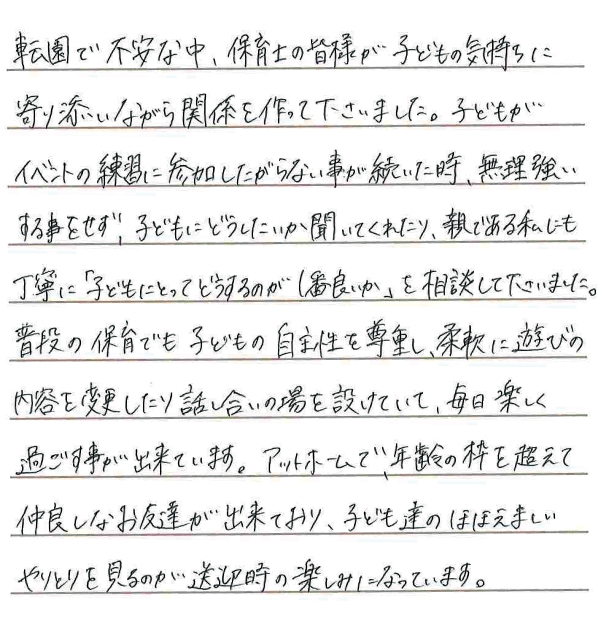 転園で不安な中、保育士の皆様が子どもの気持ちに
寄り添いながら関係を作って下さいました。子どもが
イベントの練習に参加したがらない事が続いた時、無理強い
する事をせず、子どもにどうしたいか聞いてくれたり、親である私にも
丁寧に「子どもにとってどうするのが1番良いか」を相談して下さいました。
普段の保育でも子どもの自主性を尊重し、柔軟に遊びの
内容を変更したり話し合いの場を設けていて、毎日楽しく
過ごす事が出来ています。アットホームで、年齢の枠を超えて
仲良しなお友達が出来ており、子ども達のほほえましい
やりとりを見るのが送迎時の楽しみになっています。